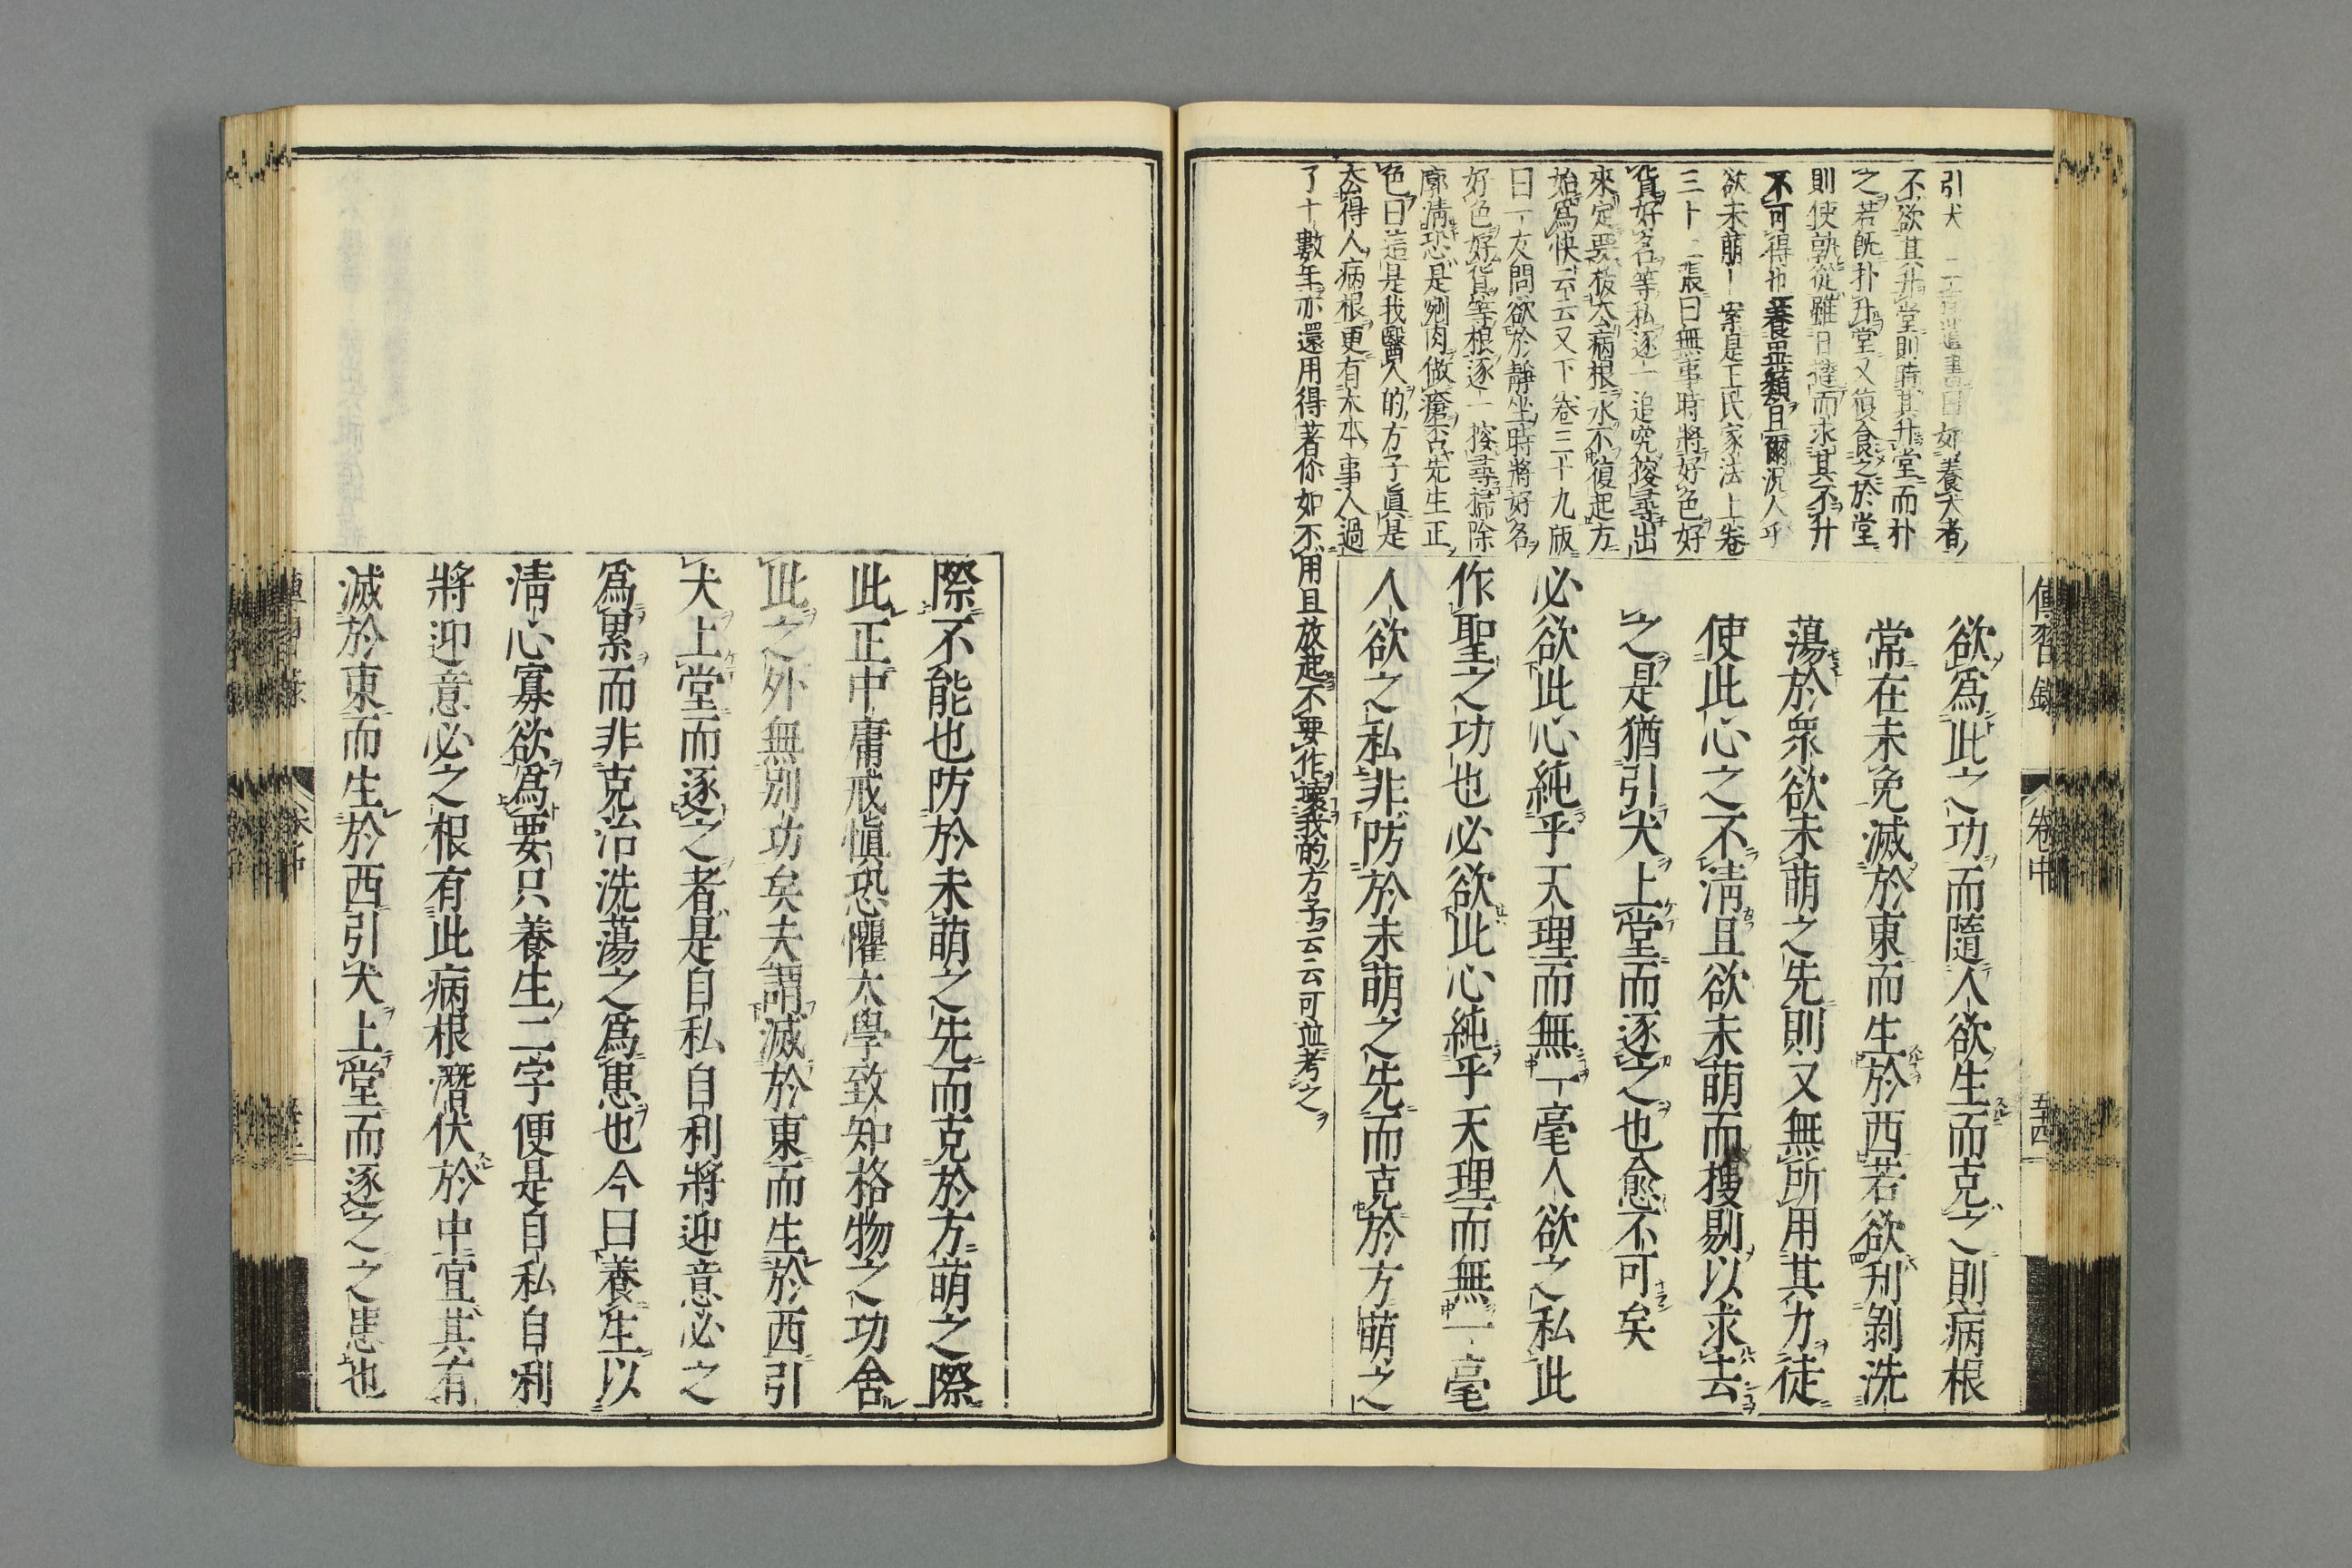 傳習錄
卷中
五十四
引犬 二程遺書曰如養犬者
不欲其升堂則時其升堂而扑
之若既扑升堂又復食之於堂
則使孰從雖日撻而求其不升
不可得也養異類且爾況人乎
欲未萌 案是王氏家法上卷
三十二張曰無事時將好色好
貨好名等私逐一追究搜尋出
來定要拔去病根永不復起方
始爲快云云又下卷三十九版
曰一友問欲於靜坐時將好名
好色好貨等根逐一搜尋掃除
廓淸恐是剜肉做瘡否先生正
色曰這是我醫人的方子眞是
去得人病根更有大本事人過
了十數年亦還用得著你如不用且放起不要作壞我的方子云云可並考之
欲爲此之功而隨人欲生而克之則病根
常在未免滅於東而生於西若欲刋剝洗
蕩於衆欲未萌之先則又無所用其力徒
使此心之不淸且欲未萌而搜剔以求去
之是猶引犬上堂而逐之也愈不可矣
必欲此心純乎天理而無一毫人欲之私此
作聖之功也必欲此心純乎天理而無一毫
人欲之私非防於未萌之先而克於方萌之
際不能也防於未萌之先而克於方萌之際
此正中庸戒愼恐懼大學致知格物之功舍
此之外無別功矣夫謂滅於東而生於西引
犬上堂而逐之者是自私自利將迎意必之
爲累而非克治洗蕩之爲患也今曰養生以
淸心寡欲爲要只養生二字便是自私自利
將迎意必之根有此病根潛伏於中宜其有
滅於東而生於西引犬上堂而逐之之患也